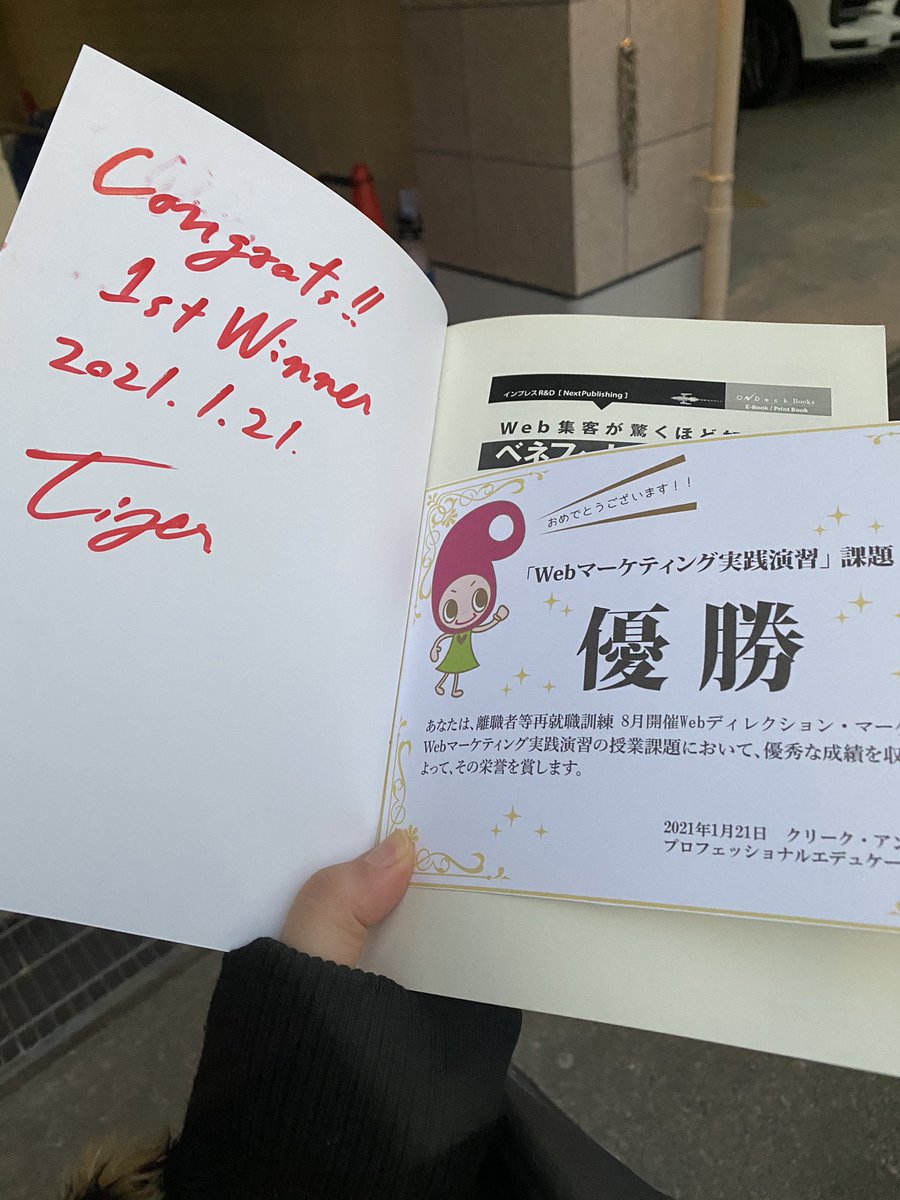 Congrats!!
1st Winner
2021.1.21.
Tiger
インプレスR&D [ NextPublishing ]
OnDeck Books
E-Book / Print Book
Web集客が驚くほど
ベネフィ
おめでとうございます!!
「Webマーケティング実践演習」課題
優勝
あなたは、離職者等再就職訓練 8月開催Webディレクション・マー
Webマーケティング実践演習の授業課題において、優秀な成績を収
よって、その栄誉を賞します。
2021年1月21日 クリーク・アン
プロフェッショナルエデュケー